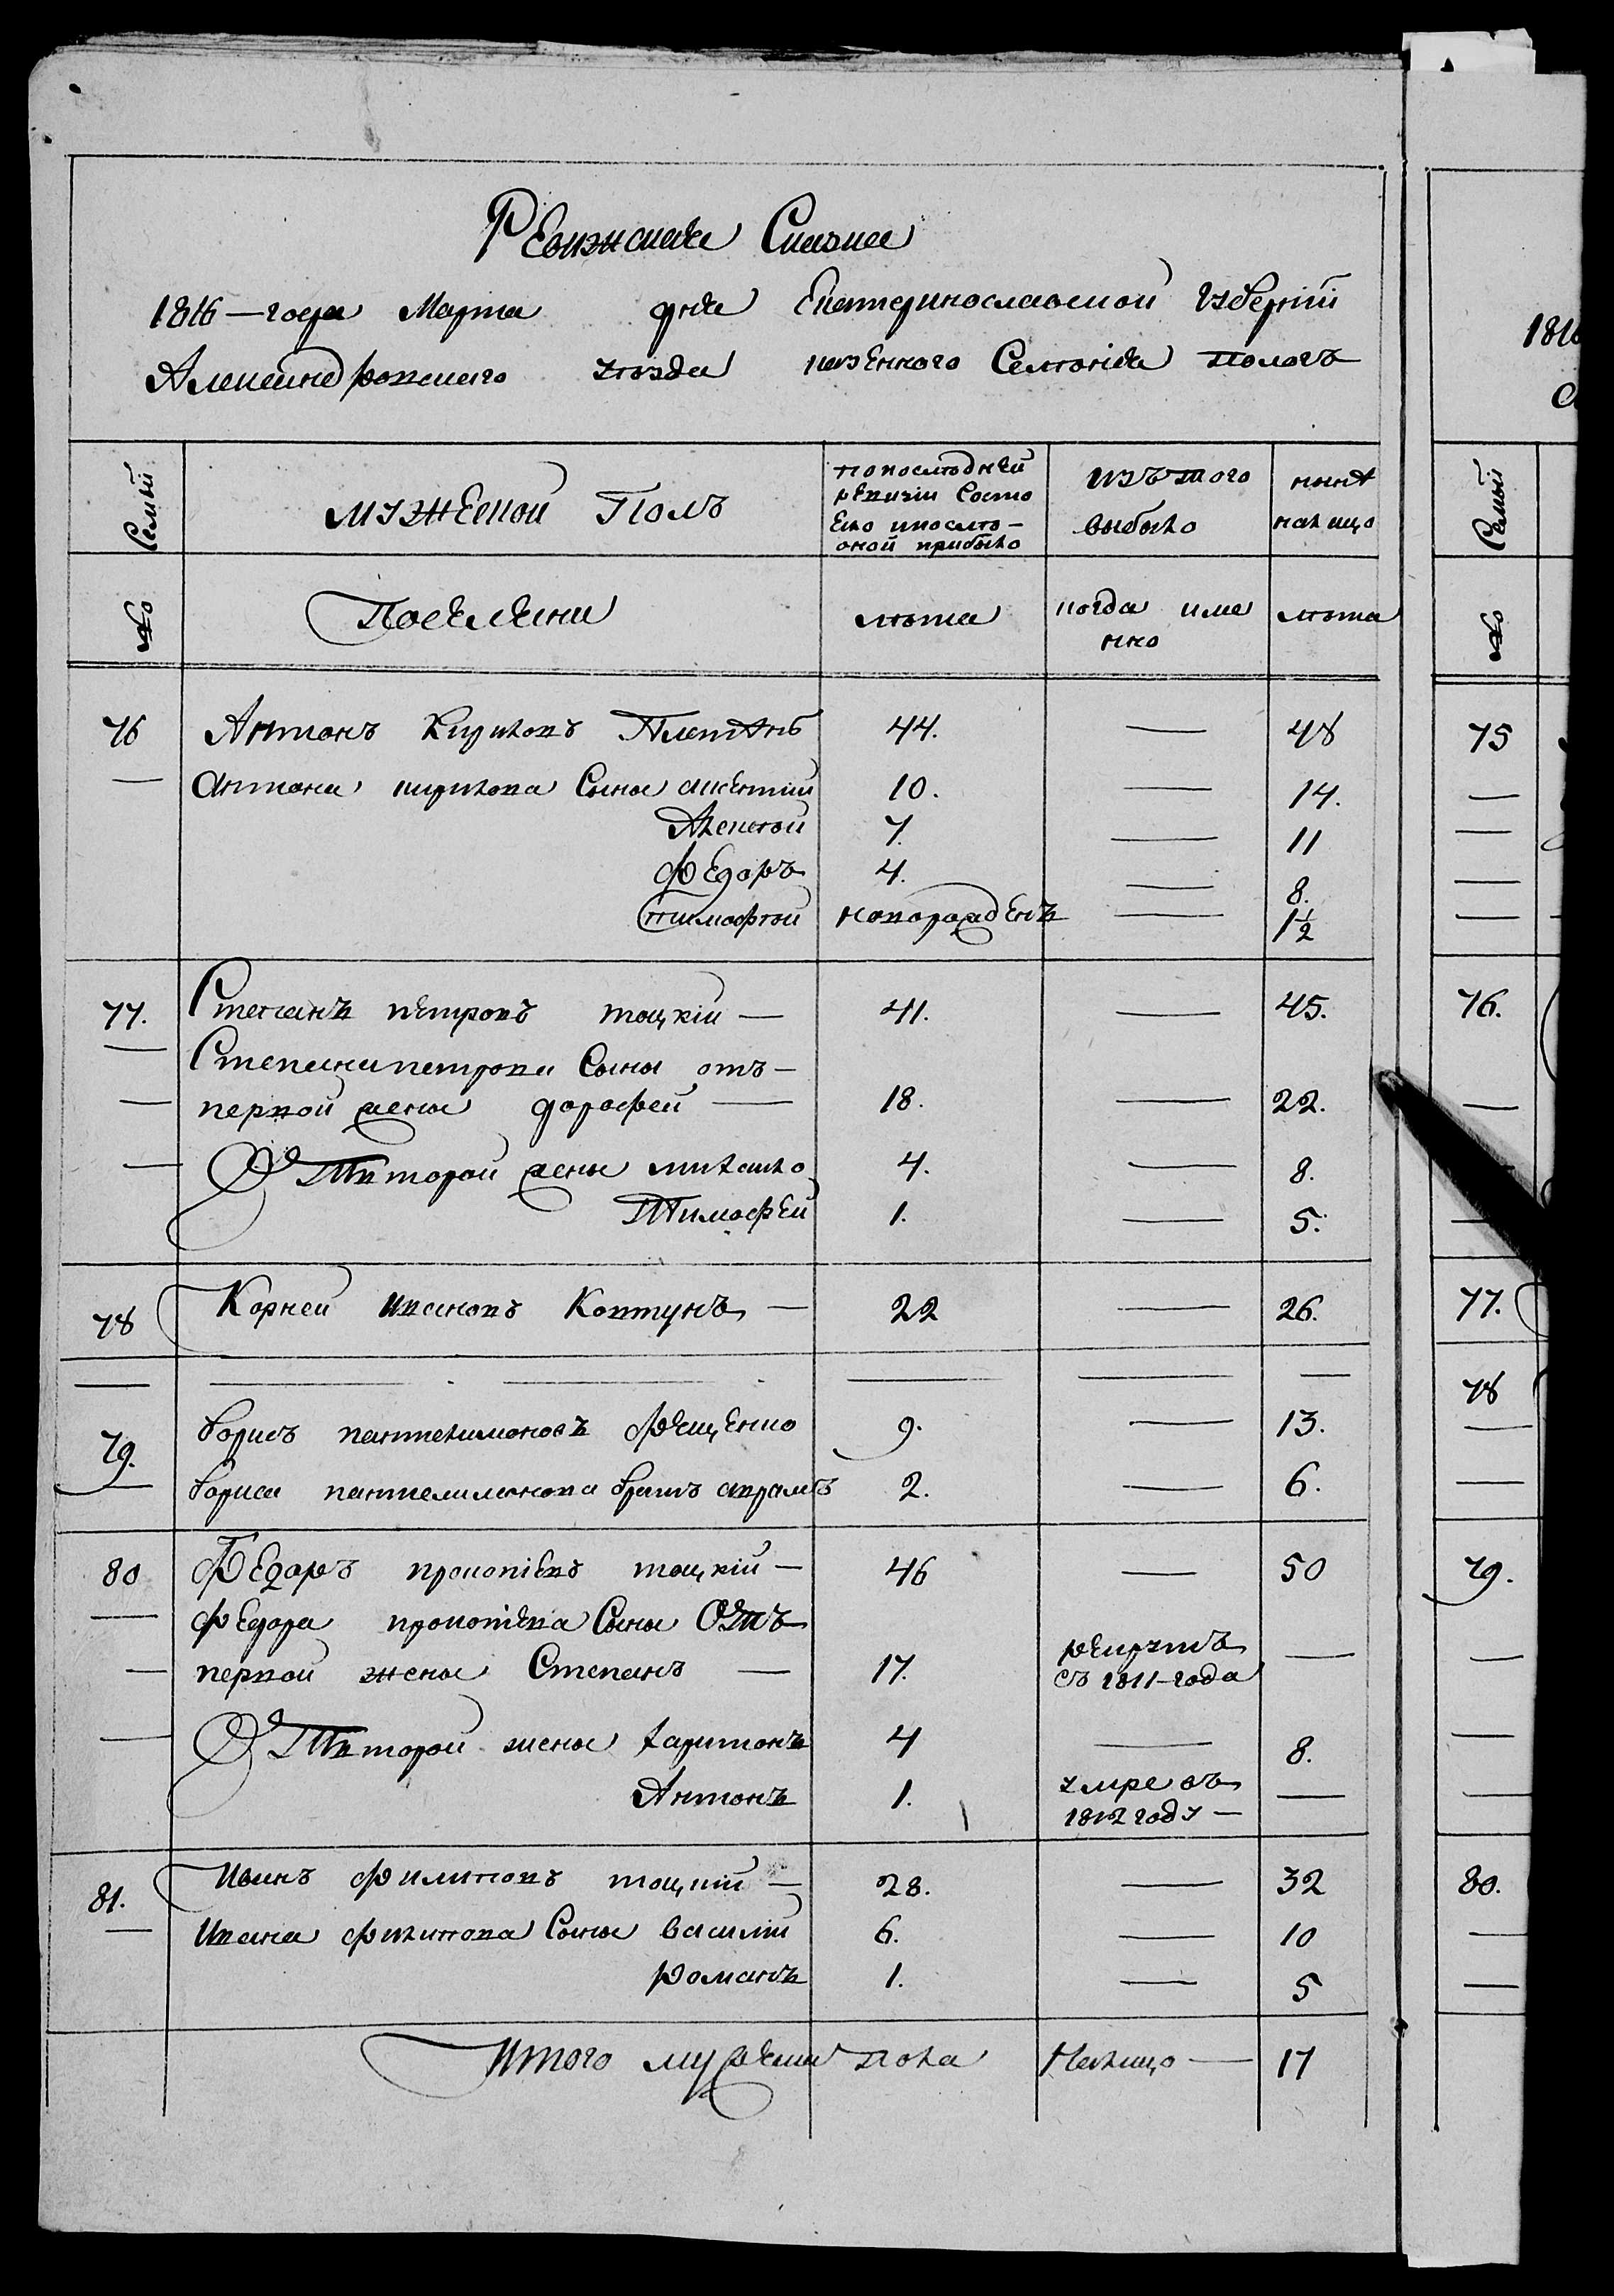 Ревизская Сказка
1816 — года Марта дня Екатеринославской Губерніи
Александровскаго уѣзда казенного Селенія Пологъ
Семьи
мужеской Полъ
по последней ревизіи Состояло и после оной прибыло
изъ того выбыло
нынѣ налицо
№
Поселяни
лѣта
когда имено
лѣта
76 Антонъ Кириловъ 44. — 48
— Антона кирилова Сыны аксентий 10. — 14.
Алексѣй 7. — 11
Федоръ 4. — 8.
тимофѣй новорожденъ — 1½
77. Степанъ петровъ тоцкій — 41. — 45.
— Степана петрова Сыны отъ —
— первой жены дорофей — 18. — 22.
— Отвторой жены михайло 4. — 8.
Тимофей 1. — 5.
78 Корней ивановъ Ковтунъ — 22 — 26.
79. борисъ пантелимоновъ Фещенко 9. — 13.
— бориса пантелимонова братъ аврамъ 2. — 6.
80 Федоръ прокопіевъ тоцкій — 46 — 50
— федора прокопіева Сыны Отъ
— первой жены Степанъ — 17. рекрутъ съ 1811 — года —
— Отвторой жены харитонъ 4 — 8.
Антонъ 1. умре въ 1812 году — —
81. Иванъ филиповъ тоцкій — 28. — 32
— Ивана филипова Сыны василій 6. — 10
романъ 1. — 5
Итого мужеска пола Налицо — 17
1816
Семьи
№
75
76.
77.
78
79.
80.